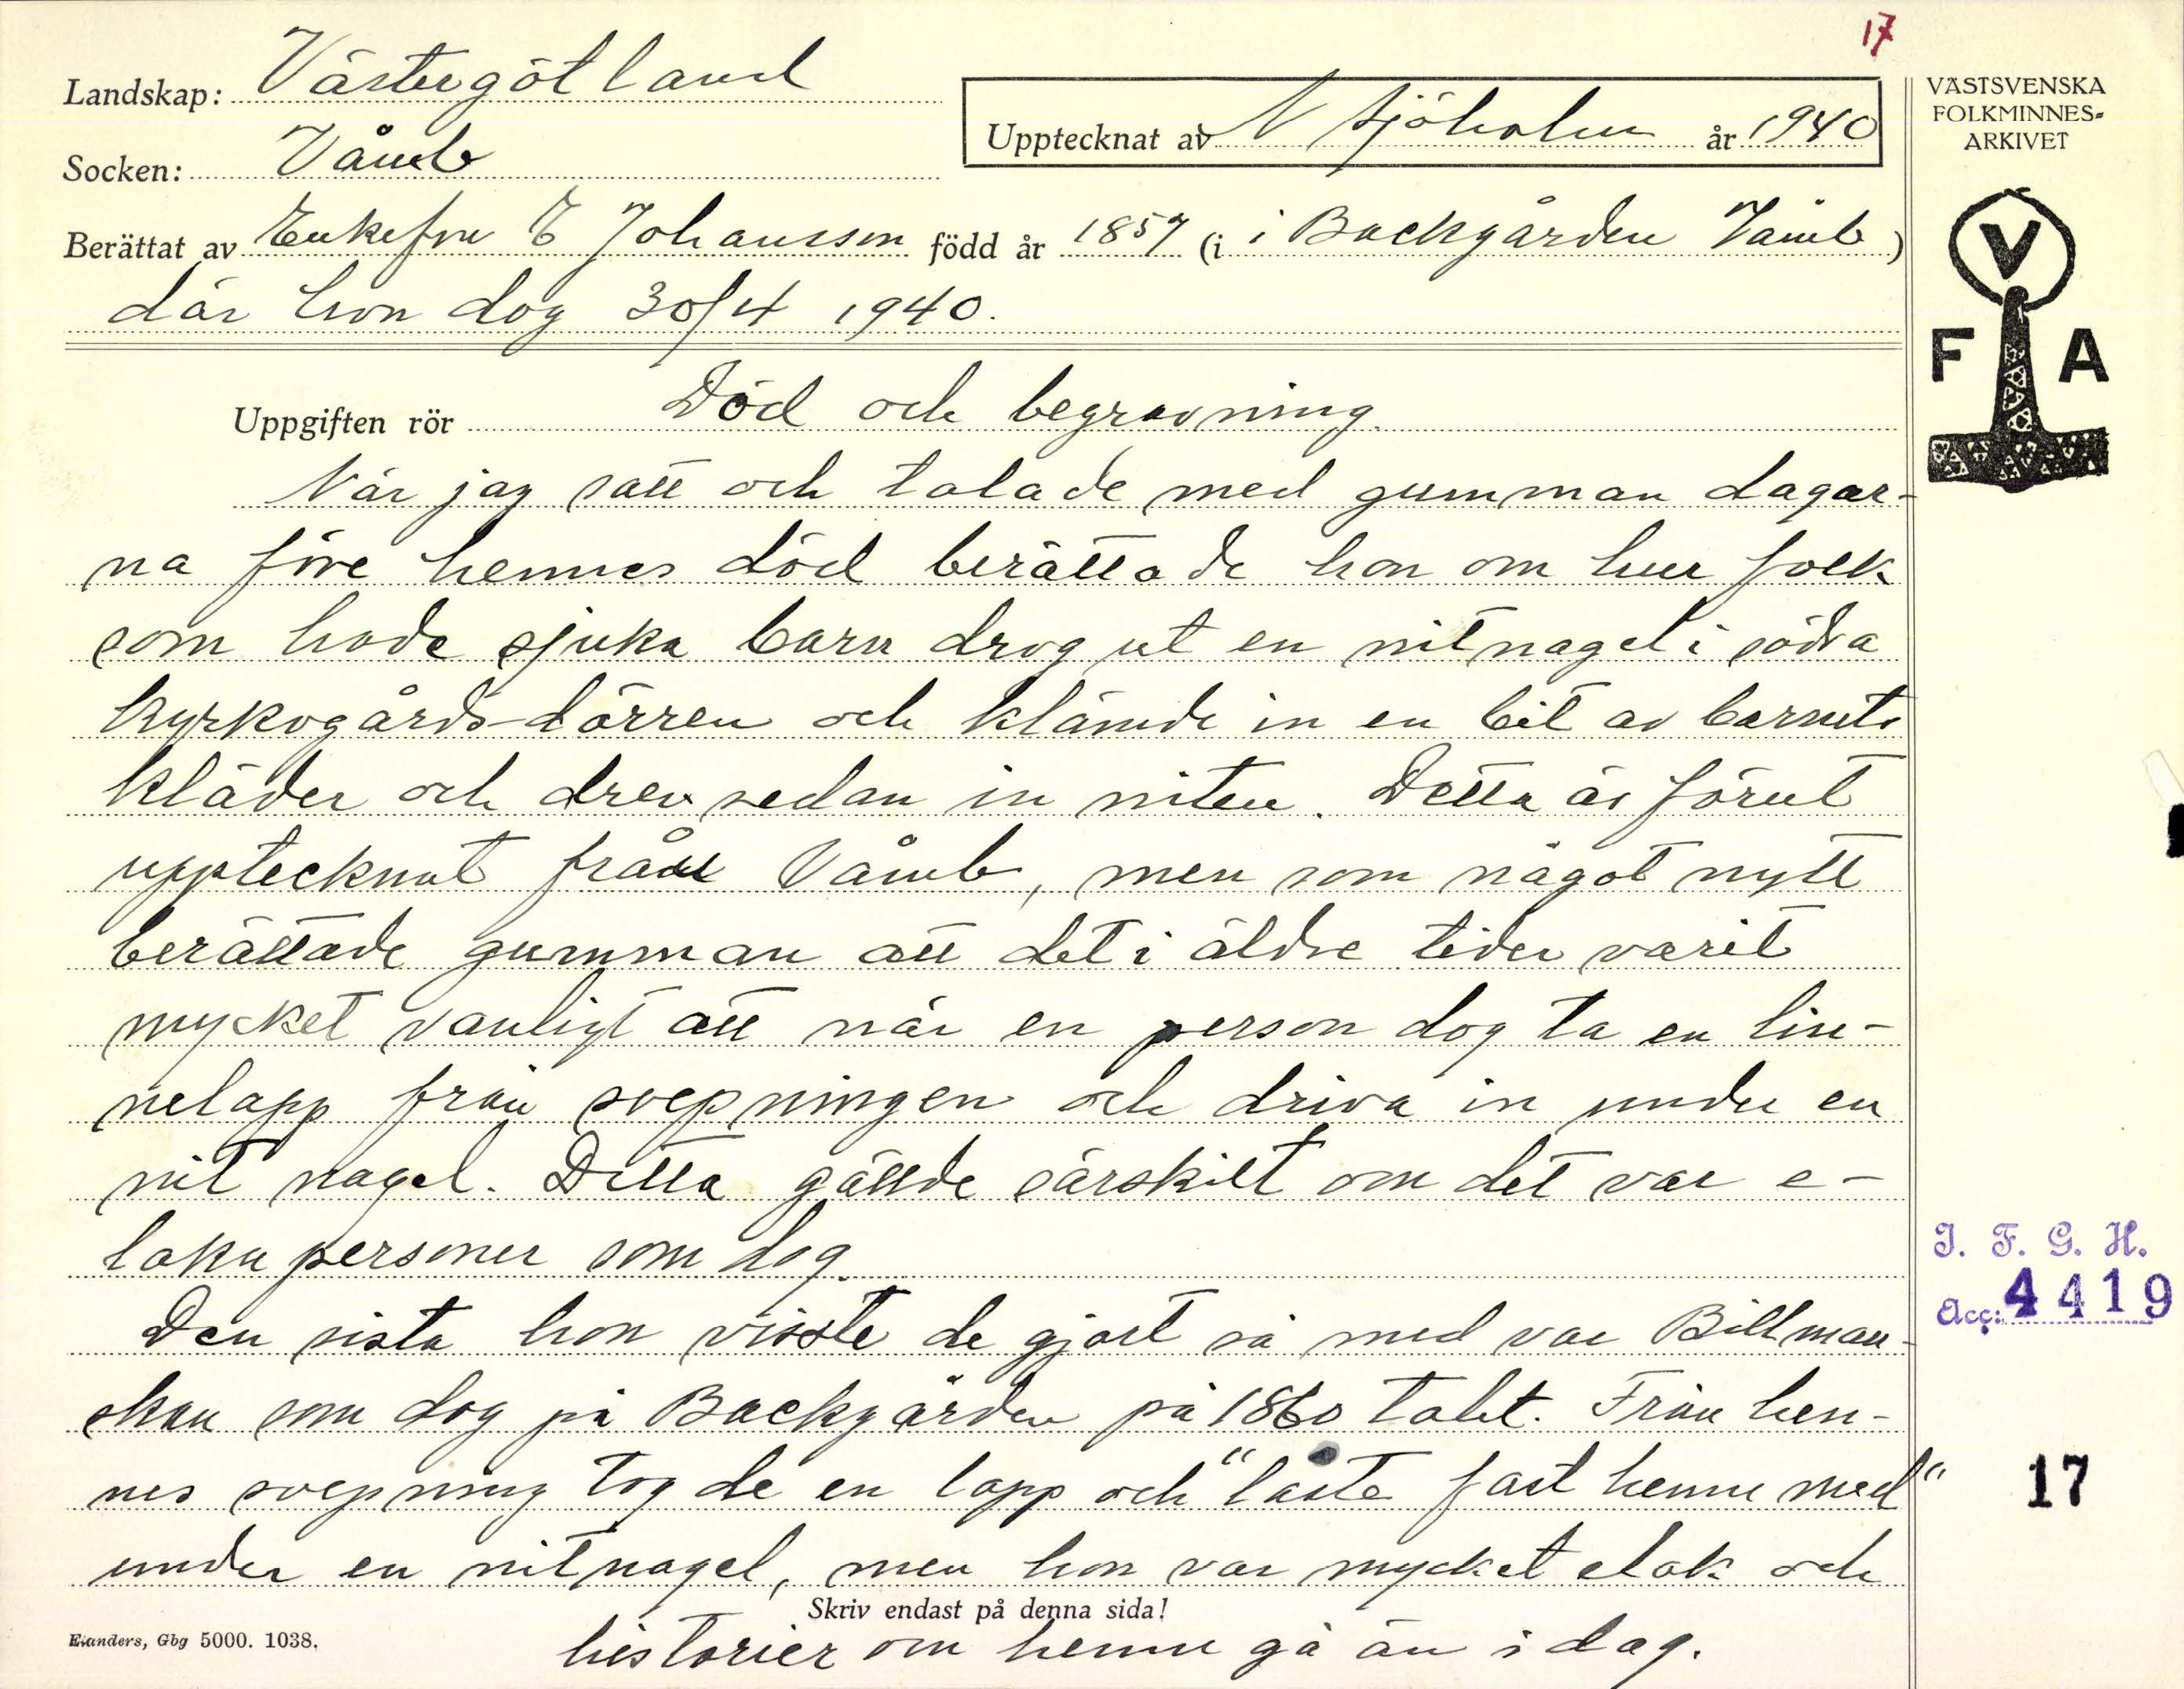 17
Landskap: Västergötland
Socken: Våmb
Upptecknat av N Sjöholm år 1940
Berättat av Enkefru E Johansson född år 1857 (i i Backgården Våmb)
där hon dog 30/4 1940.
Uppgiften rör Död och begravning.
När jag satt och talade med gumman dagar-
na före hennes död berättade hon om hur folk
som hade sjuka barn drog ut en nitnagel i södra
kyrkogårds-dörren och klämde in en bit av barnets
kläder och drev sedan in niten. Detta är förut
upptecknat från Våmb, men som något nytt
berättade gumman att det i äldre tider varit
mycket vanligt att när en person dog ta en lin-
nelapp från svepningen och driva in under en
nit nagel. Detta gällde särskilt om det var e-
laka personer som dog.
Den sista hon visste de gjort så med var Billman-
skan som dog på Backgården på 1860 talet. Från hen-
nes svepning tog de en lapp och "låste fast henne med"
under en nitnagel, men hon var mycket elak och
historier om henne gå än i dag.
Skriv endast på denna sida!
Elanders, Gbg 5000. 1038.
VÄSTSVENSKA
FOLKMINNES-
ARKIVET
V
F A
I. F. G. H.
Acc: 4419
17